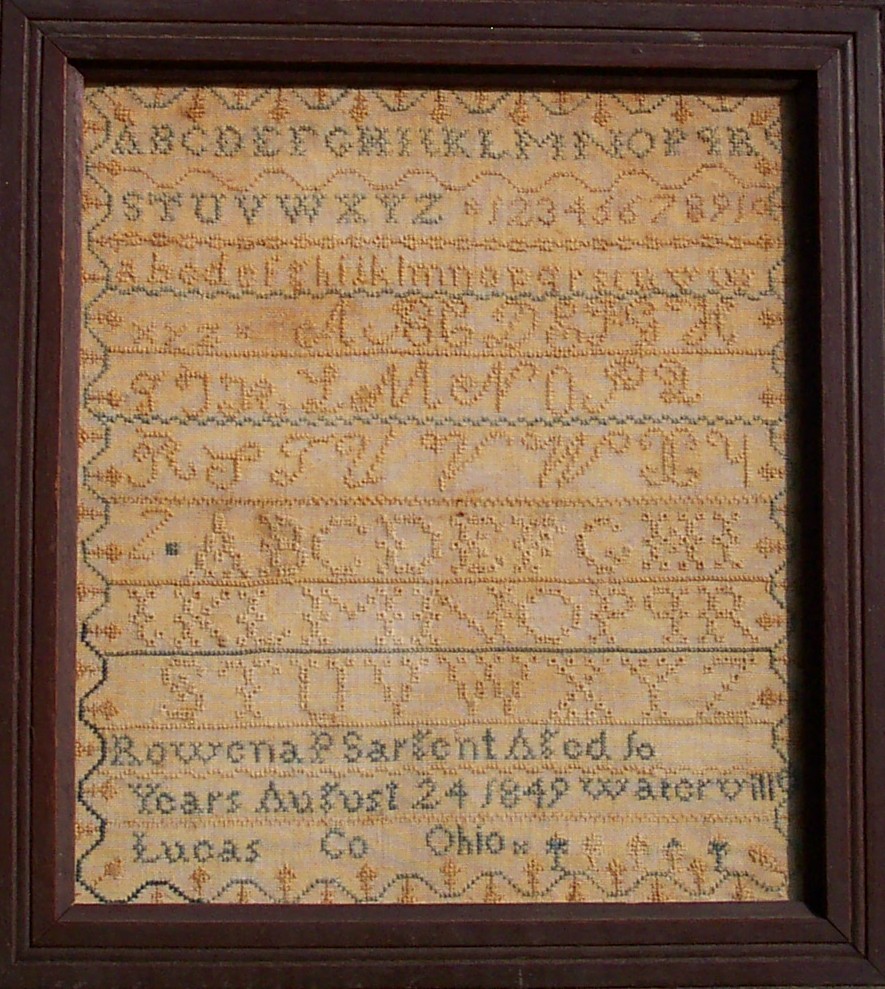 A B C D E F G H I J K L M N O P Q R
S T U V W X Y Z 1 2 3 4 5 6 7 8 9 10
a b c d e f g h i j k l m n o p q r s u v w
x y z A B C D E F G H
I J K L M N O P Q
R S T U V W X Y
Z A B C D E F G H
I K L M N O P Q R
S T U V W X Y Z
Rowena P Sargent Aged 10
Years August 24 1849 Waterville
Lucas Co Ohio